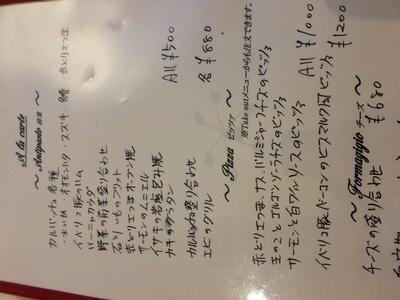 A la carte
～ Antipasto 前菜 ～
カルパッチョ各種
・まいか ・オオモンハタ ・スズキ ・赤とりエつま
イベリコ豚のハム
バーニャカウダ
野菜の前菜盛り合わせ
石りものフリット
赤とりエつまオーブン焼
サーモンのムニエル
イサキの岩塩包み焼
カキのグラタン
All ¥500
カルパッチョ盛り合わせ
エビのグリル
各 ¥880
～ Pizza ピッツァ ～
※Take outメニューからも注文できます。
赤とりエつま、ナス、パルミジャーノチーズのピッツァ
王のことゴルゴンゾーラチーズのピッツァ
サーモンと白ワインソースのピッツァ
All ¥1000
イベリコ豚ベーコンのビスマルク風ピッツァ
¥1200
～ Formaggio チーズ ～
チーズの盛り合わせ
¥680